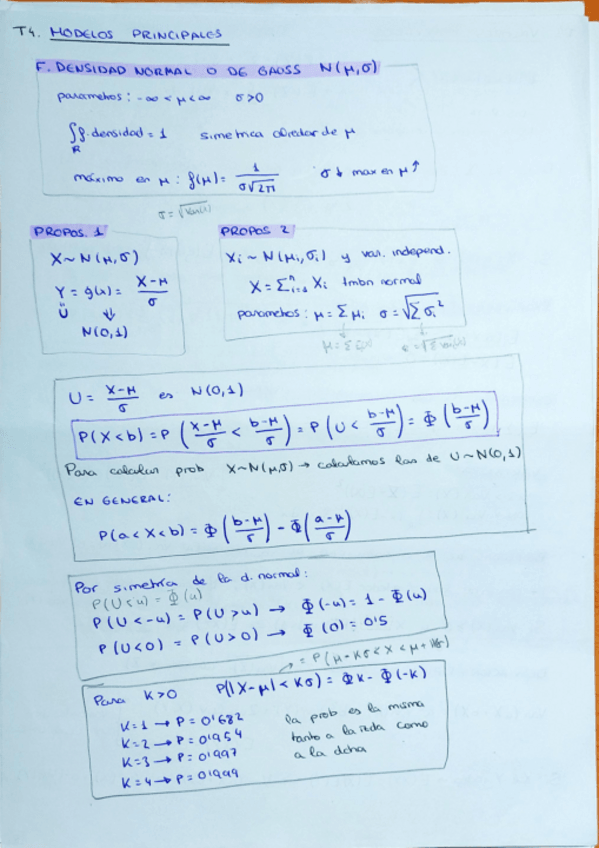 T4. MODELOS PRINCIPALES
F. DENSIDAD NORMAL O DE GAUSS N(μ,σ)
parametros: -∞ < μ < ∞ σ>0
∫ f. densidad = 1 simetrica alrededor de μ
R
máximo en μ: f(μ) = 1/(σ√2π) σ↓ max en μ↑
σ = √Var(x)
PROPOS. 1
X ~ N(μ,σ)
Y = g(x) = (X-μ)/σ
Ü ⇓
N(0,1)
PROPOS 2
Xi ~ N(μi,σi) y var. independ.
X = Σ^n_{i=1} Xi tmbn normal
parametros: μ = Σ μi σ = √Σ σi²
U = (X-μ)/σ es N(0,1)
P(X<b) = P((X-μ)/σ < (b-μ)/σ) = P(U < (b-μ)/σ) = Φ((b-μ)/σ)
Para calcular prob X~N(μ,σ) → calculamos las de U~N(0,1)
EN GENERAL:
P(a<X<b) = Φ((b-μ)/σ) - Φ((a-μ)/σ)
Por simetría de la d. normal:
P(U≤u) = Φ(u)
P(U<-u) = P(U>u) → Φ(-u) = 1 - Φ(u)
P(U<0) = P(U>0) → Φ(0) = 0'5
= P(μ-Kσ < X < μ+Kσ)
Para K>0 P(|X-μ|<Kσ) = ΦK - Φ(-K)
K=1 → P = 0'682
K=2 → P = 0'954
K=3 → P = 0'997
K=4 → P = 0'999
la prob es la misma
tanto a la izda como
a la dcha